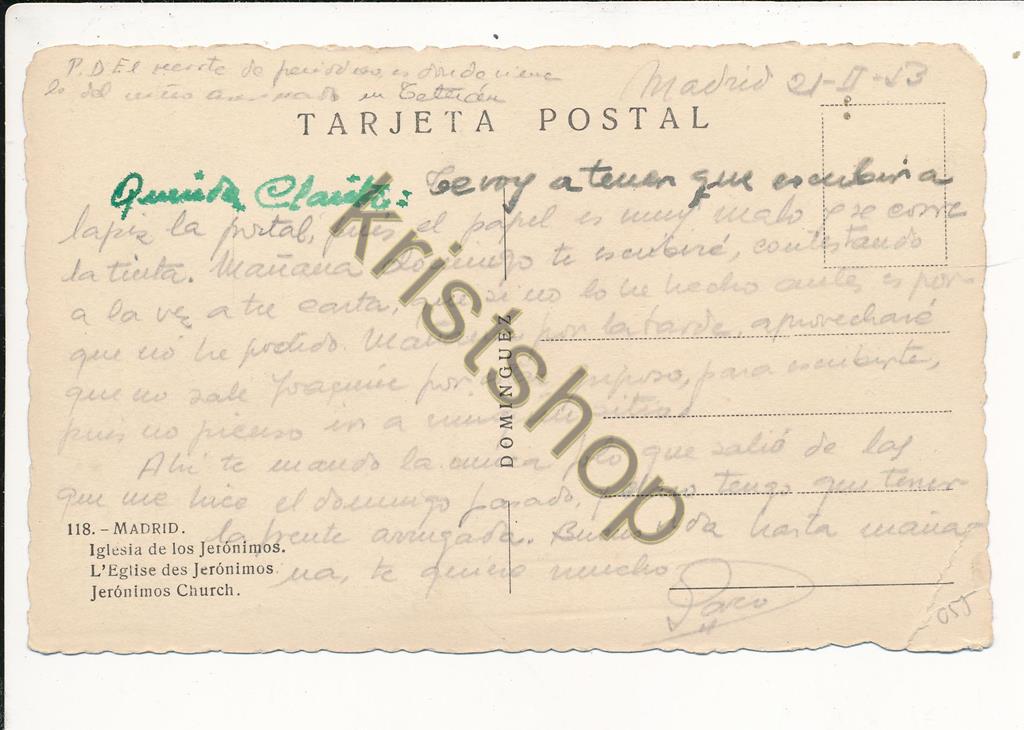 P.D. El recorte de periódico, es donde viene
lo del niño asesinado en Tetuán
Madrid 21-II-53
TARJETA POSTAL
Querida Clarita: Te voy a tener que escribir a
lapiz la postal, pues el papel es muy malo y se corre
la tinta. Mañana domingo te escribiré, contestando
a la vez a tu carta, que si no lo he hecho antes es por-
que no he podido. Mañana por la tarde, aprovecharé
que no sale Joaquín por, para escribirte,
pues no pienso ir a ningún sitio.
Ahí te mando la única foto que salió de las
que me hice el domingo pasado, tengo que tener
la frente arrugada. Bueno vida hasta maña-
na, te quiere mucho
Paco
DOMINGUEZ
118. - MADRID.
Iglesia de los Jerónimos.
L'Eglise des Jerónimos
Jerónimos Church.
055
kristshop